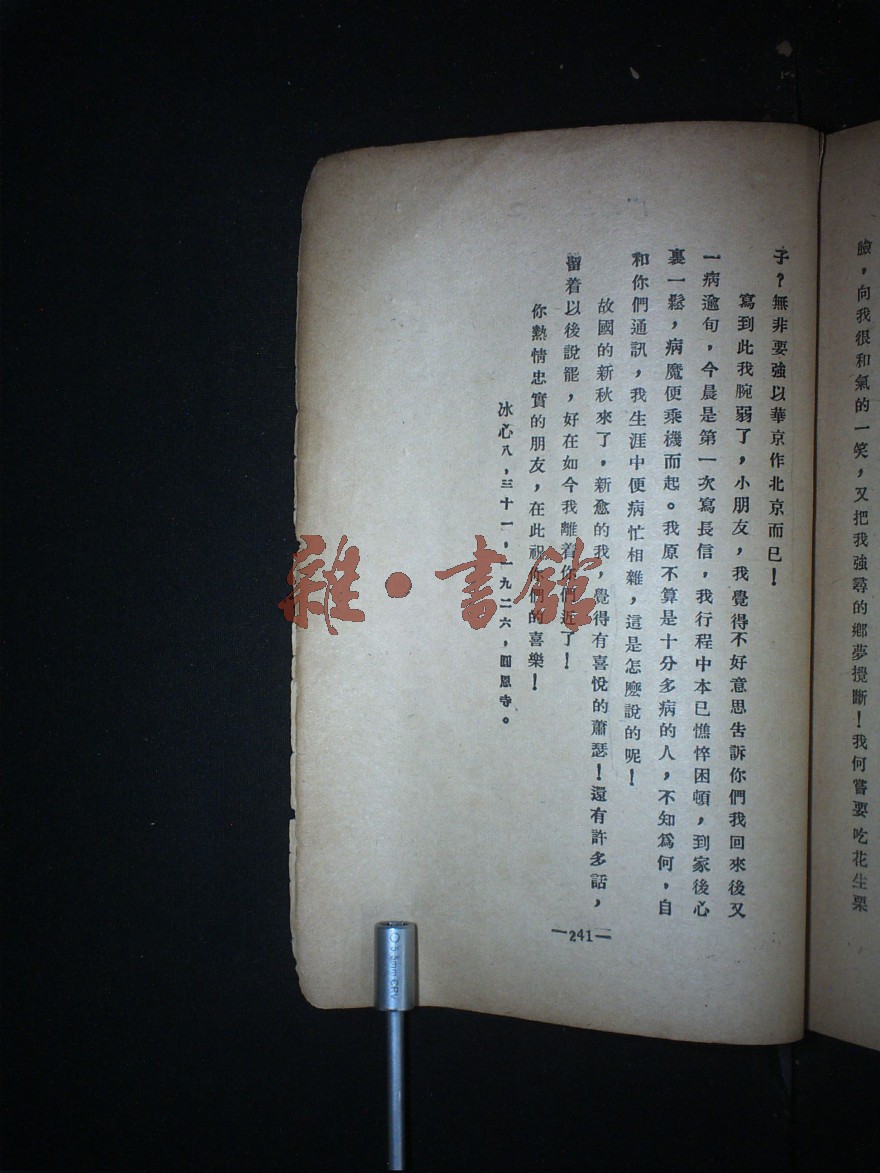 臉，向我很和氣的一笑，又把我強尋的鄉夢攪斷！我何嘗要吃花生栗
子？無非要強以華京作北京而已！
寫到此我腕弱了，小朋友，我覺得不好意思告訴你們我回來後又
一病逾旬，今晨是第一次寫長信，我行程中本已憔悴困頓，到家後心
裏一鬆，病魔便乘機而起。我原不算是十分多病的人，不知爲何，自
和你們通訊，我生涯中便病忙相雜，這是怎麼說的呢！
故國的新秋來了，新愈的我，覺得有喜悅的蕭瑟！還有許多話，
留着以後說罷，好在如今我離着你們近了！
你熱情忠實的朋友，在此祝你們的喜樂！
冰心八，三十一，一九二六，圓恩寺。
—241—
雜·書館
5.5mm CRV